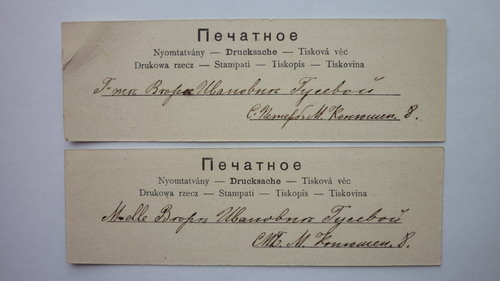 Печатное
Nyomtatvány — Drucksache — Tisková věc
Drukowa rzecz — Stampati — Tiskopis — Tiskovina
Г-жа Вѣра Ивановна Гусевой
С. Петерб. М. Конюшен. 8.
Печатное
Nyomtatvány — Drucksache — Tisková věc
Drukowa rzecz — Stampati — Tiskopis — Tiskovina
M-elle Вѣра Ивановна Гусевой
СПБ. М. Конюшен. 8.